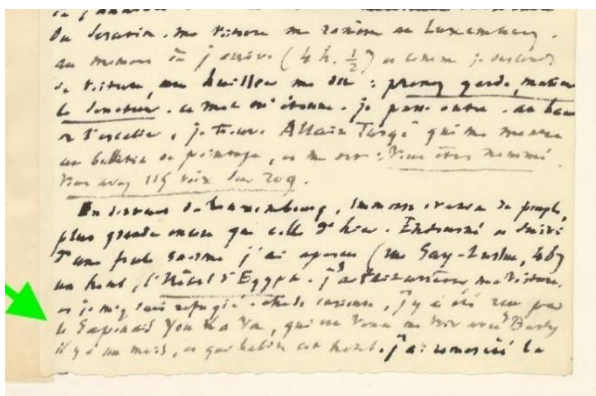 du scrutin. ma voiture me ramène au Luxembourg.
au moment où j'arrive (4 h. ½) et comme je descends
de voiture, un huissier me dit : prenez garde, monsieur
le sénateur. ce mot m'étonne. je passe outre. au haut
de l'escalier, je trouve Allain Targé qui me montre
un bulletin de pointage, et me dit : Vous êtes nommé.
Vous avez 115 voix sur 209.
En sortant du Luxembourg, immense ovation du peuple,
plus grande encore que celle d'hier. Entouré et suivi
d'une foule énorme j'ai aperçu (rue Gay-Lussac,
un hôtel, l'Hôtel d'Egypte. j'ai fait arrêter ma voiture,
et je m'y suis réfugié. chose curieuse, j'y ai été reçu par
le Japonais You Ka Va, qui est venu me voir avec Burty
il y a un mois, et qui habite cet hôtel. j'ai remercié le